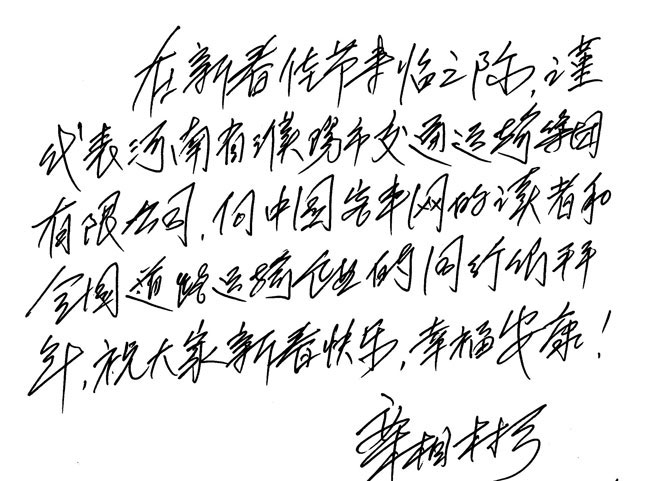 在新春佳节来临之际，谨
代表河南省濮阳市交通运输集团
有限公司，向中国客车网的读者和
全国道路运输企业的同行们拜
年，祝大家新春快乐，幸福安康！